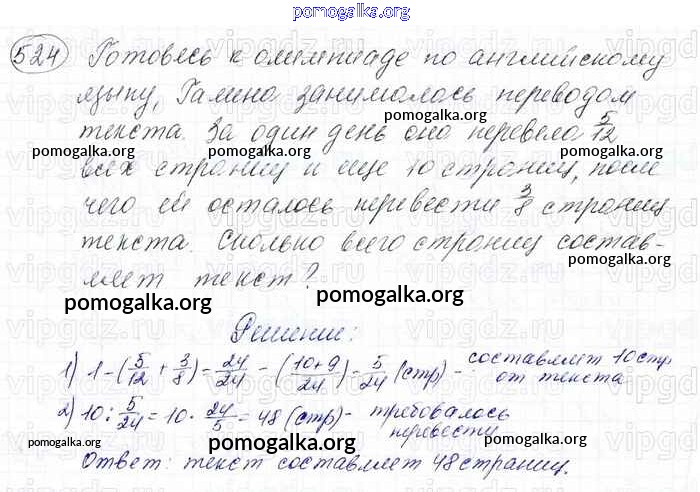 pomogalka.org
524 Готовясь к олимпиаде по английскому
языку, Галина занималась переводом
pomogalka.org
текста. За один день она перевела 5/12
pomogalka.org pomogalka.org
всех страниц и еще 10 страниц, после
чего ей осталось перевести 3/8 страниц
текста. Сколько всего страниц состав-
pomogalka.org
ляет текст?
pomogalka.org pomogalka.org
Решение:
1) 1 - (5/12 + 3/8) = 24/24 - (10+9/24) = 5/24 (стр) - составляет 10 стр
от текста
pomogalka.org
2) 10 : 5/24 = 10 · 24/5 = 48 (стр) - требовалось
перевести
pomogalka.org pomogalka.org pomogalka.org
Ответ: текст составляет 48 страниц.